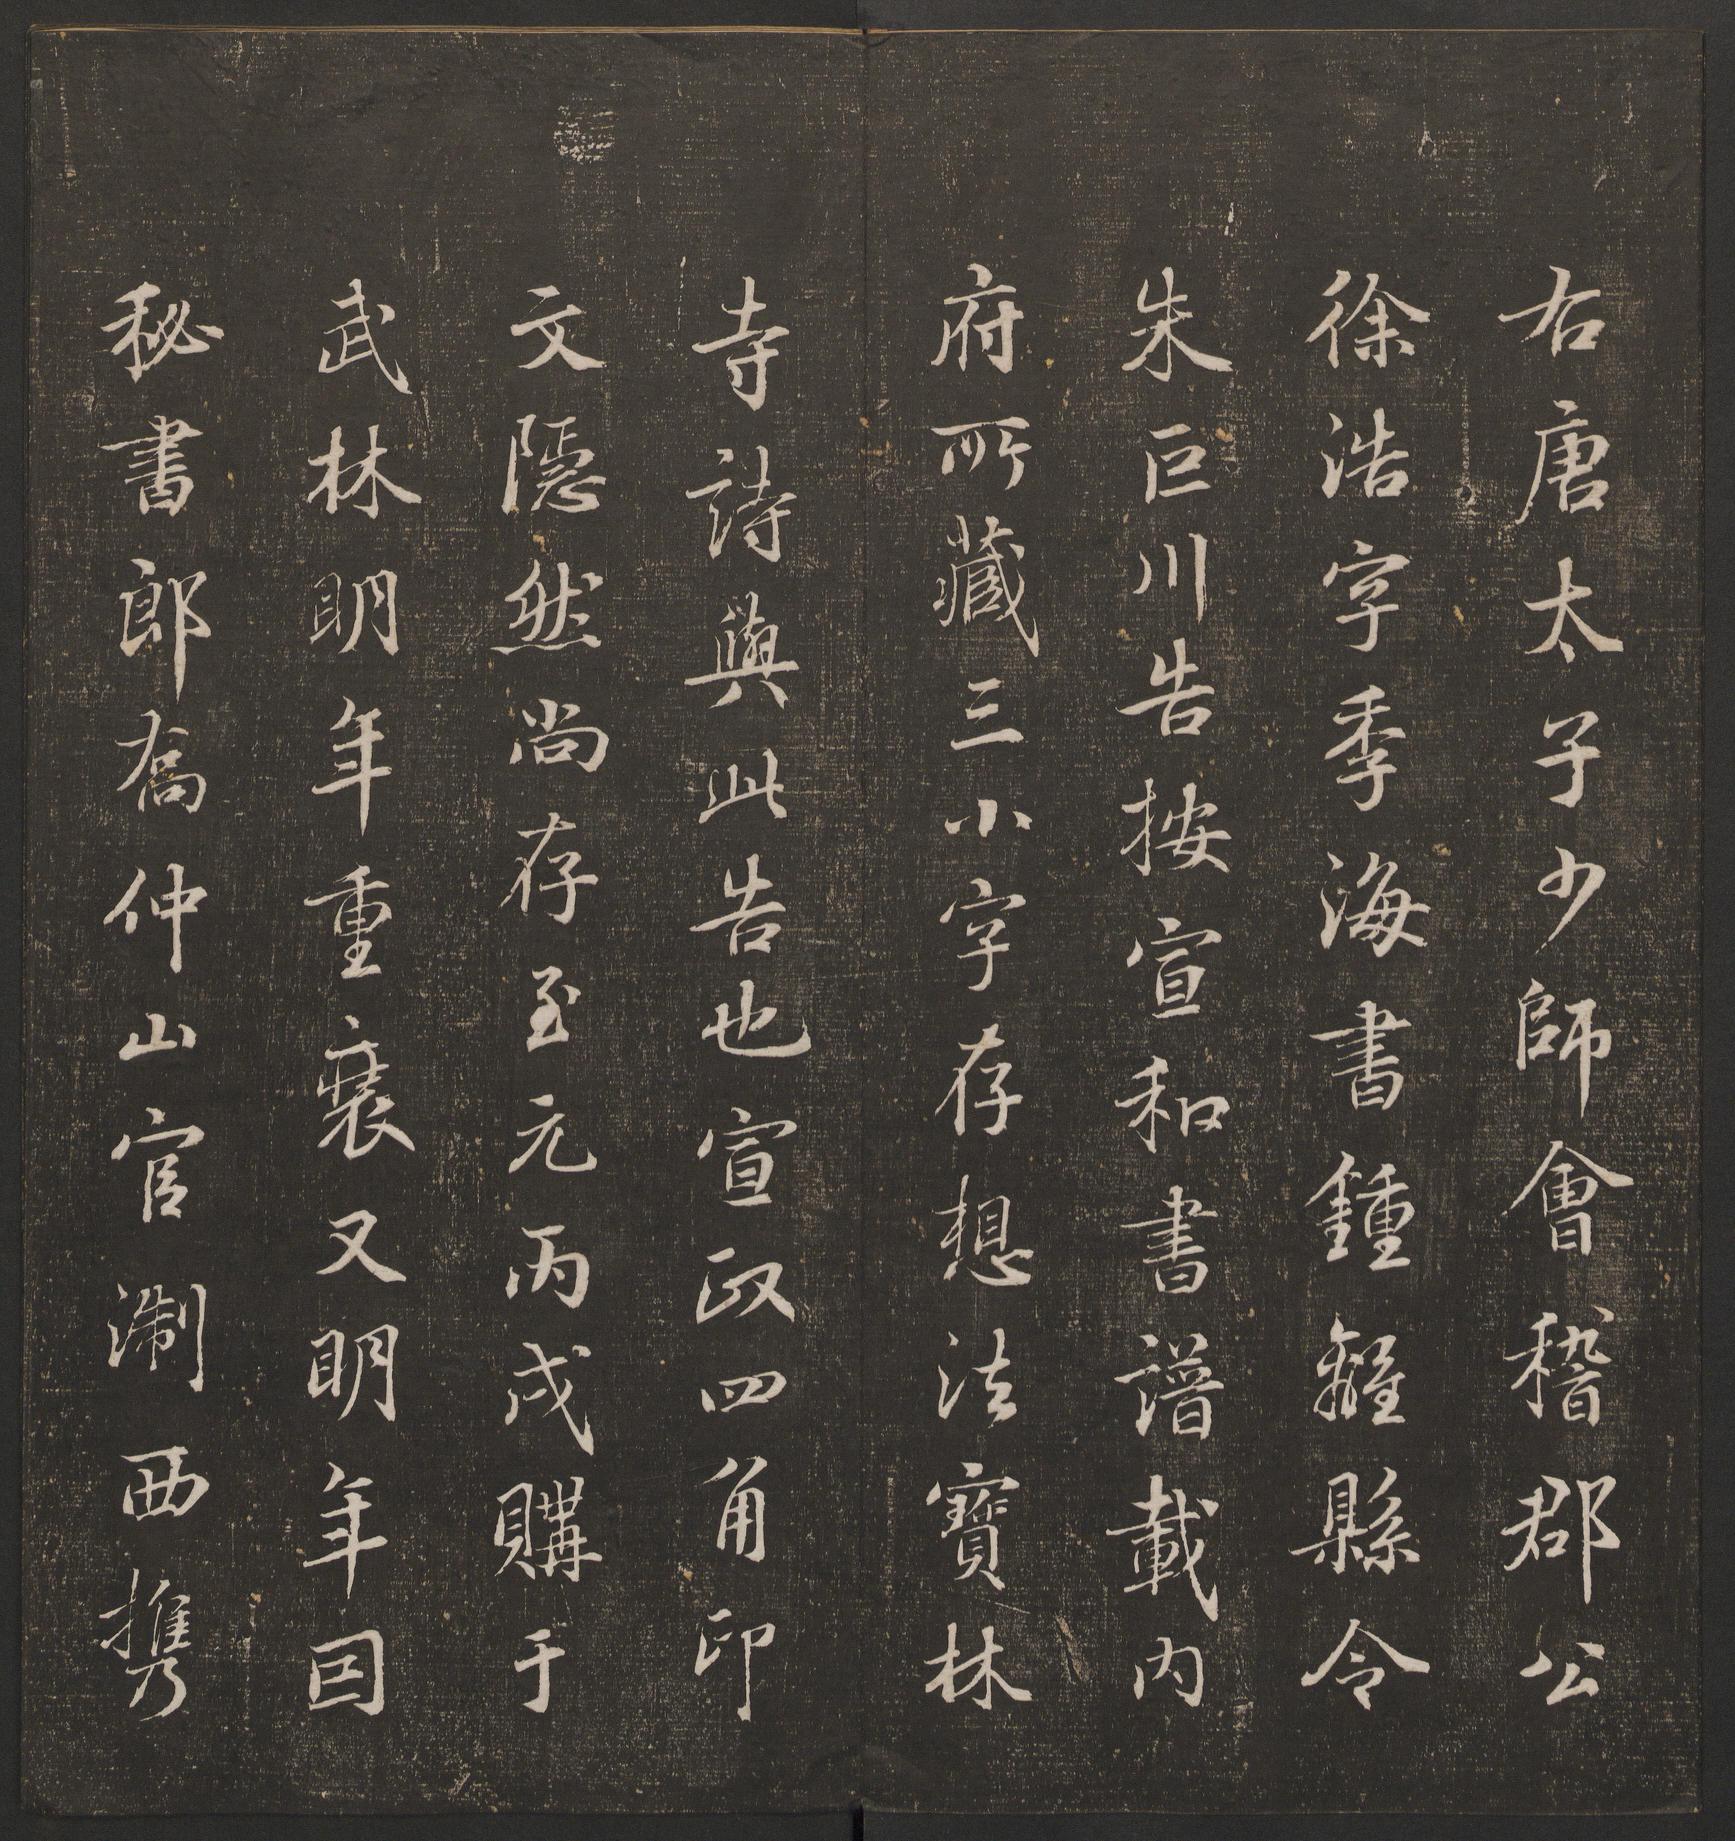 右唐太子少師會稽郡公
徐浩字季海書鍾離縣令
朱巨川告按宣和書譜載内
府所藏三小字存想法寶林
寺詩與此告也宣政四角印
文隱然尚存至元丙戌購于
武林明年重裝又明年因
秘書郎喬仲山官淛西携